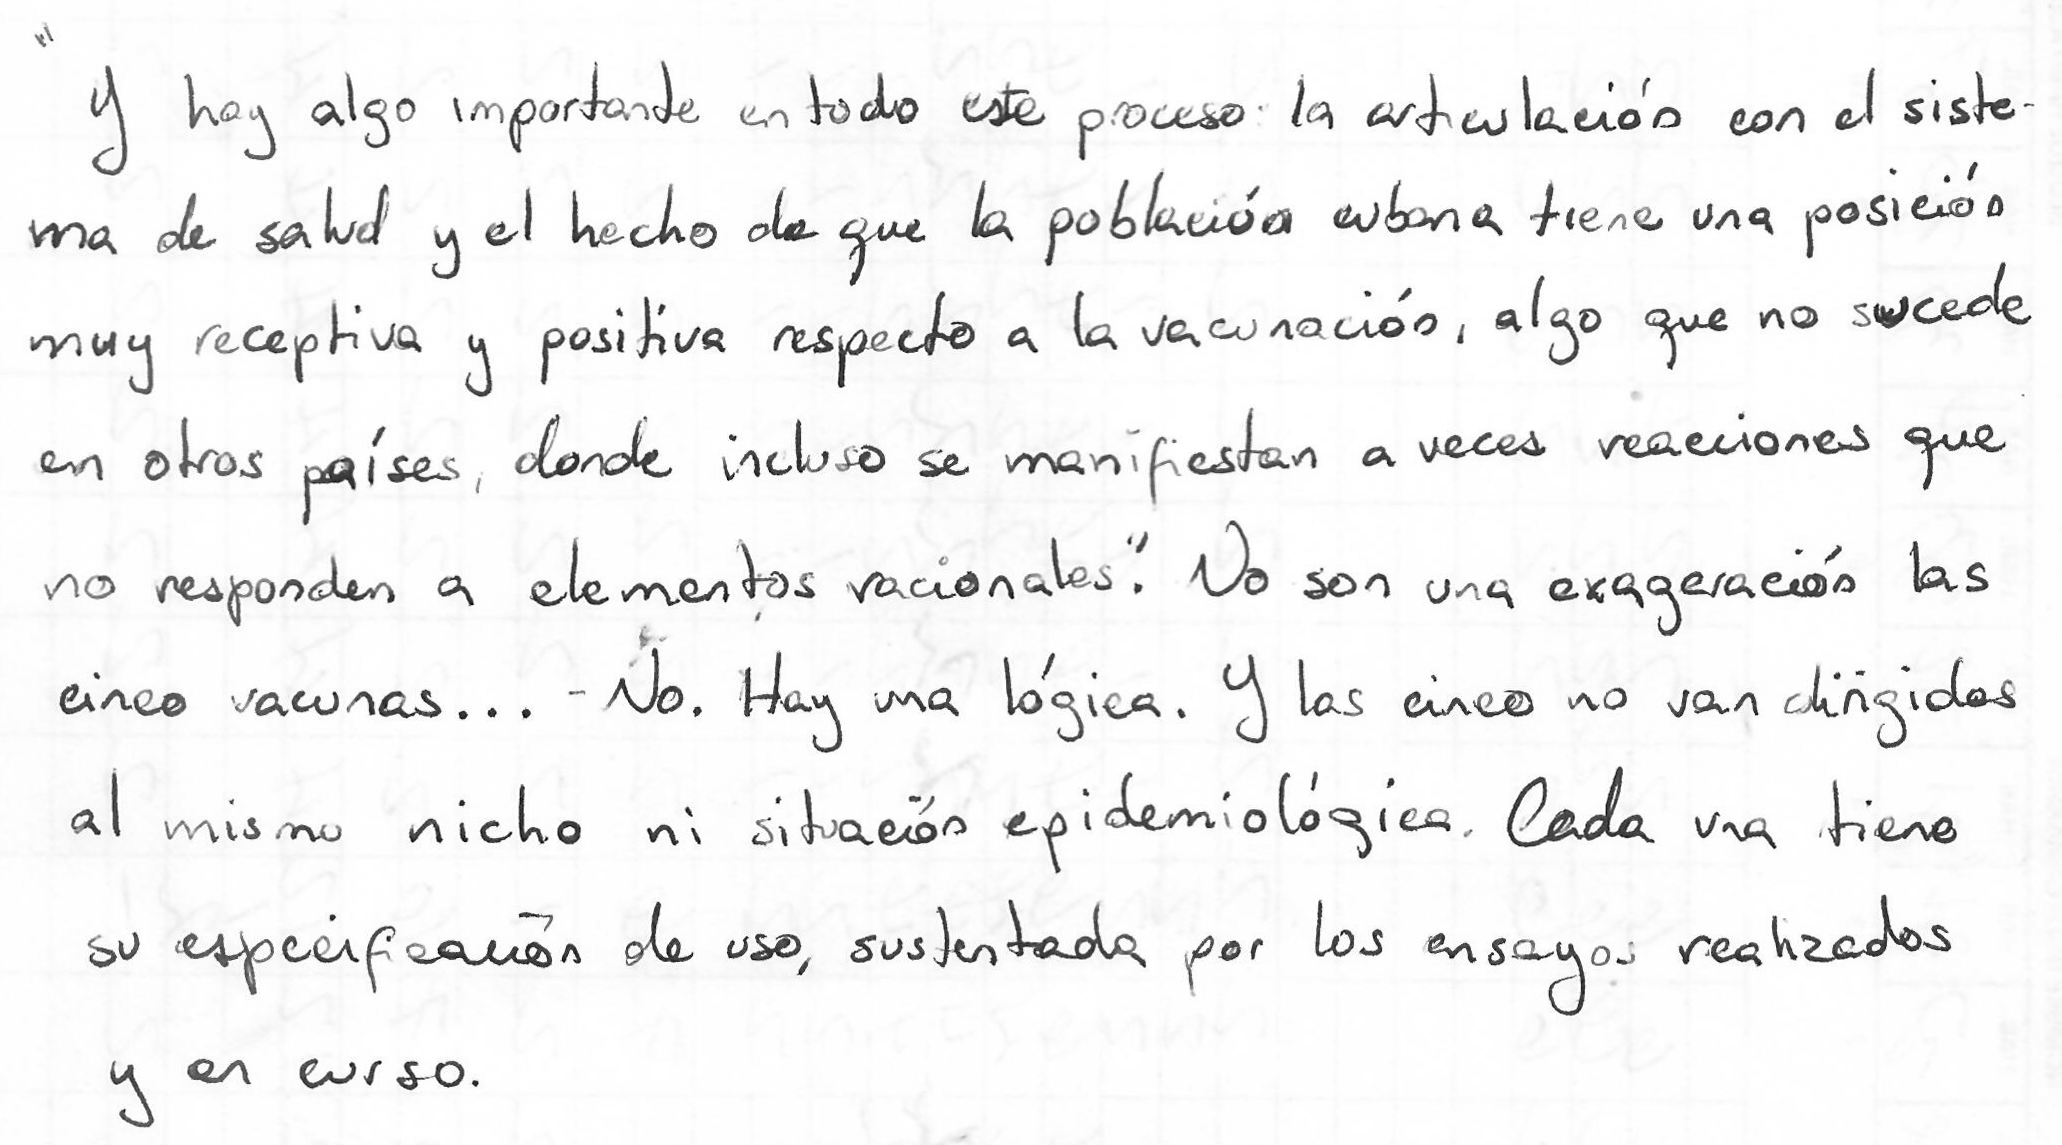 "Y hay algo importante en todo este proceso: la articulación con el siste-
ma de salud y el hecho de que la población cubana tiene una posición
muy receptiva y positiva respecto a la vacunación, algo que no sucede
en otros países, donde incluso se manifiestan a veces reacciones que
no responden a elementos racionales". No son una exageración las
cinco vacunas... - No. Hay una lógica. Y las cinco no van dirigidas
al mismo nicho ni situación epidemiológica. Cada una tiene
su especificación de uso, sustentada por los ensayos realizados
y en curso.